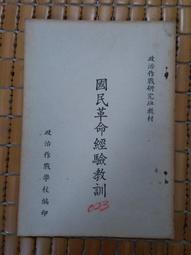 政治作戰研究班教材
國民革命經驗教訓
023
政治作戰學校編印